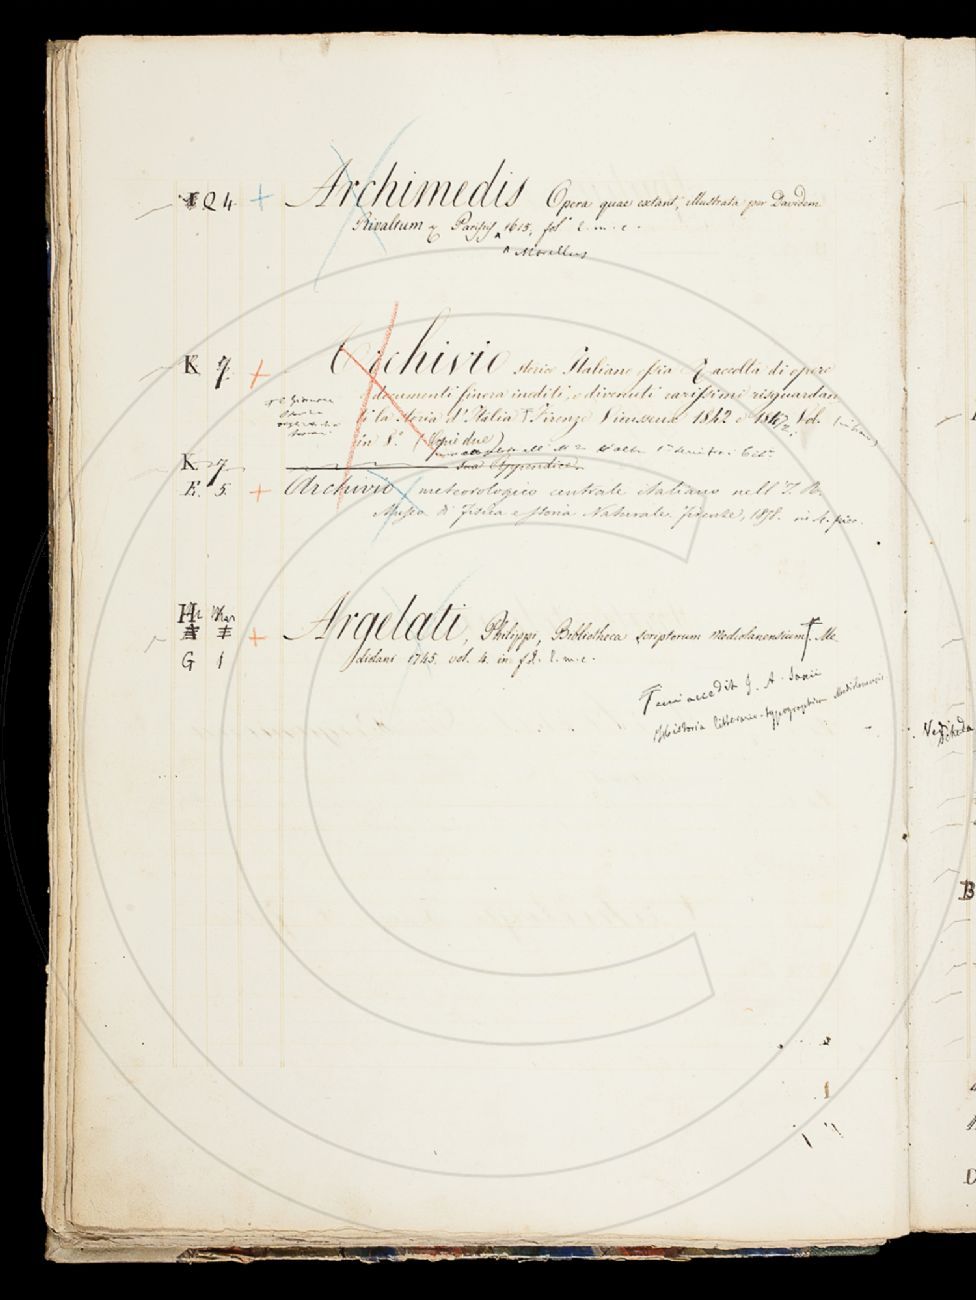 Q 4 + Archimedis Opera quae extant, illustrata per Davidem
Rivaltum Parisiis 1615, fol° l. m. c.
^ Morellus
K 7 + Archivio storico Italiano ossia Raccolta di opere
e documenti finora inediti, o divenuti rarissimi risguardan
ti la storia d'Italia Firenze Vieusseux 1842 Vol.
in 8.° (Copie due)
K 7 Sua Appendice
E. 5. + Archivio meteorologico centrale italiano nell' I. R.
Museo di fisica e storia Naturale. Firenze, 1858. in 4. picc.
Argelati, Philippi, Bibliotheca scriptorum Mediolanensium. Me
G 1 diolani 1745. vol. 4. in f.° l. m. c.
accedit J. A. Saxii
Historia litterario-typographica Mediolanensis
Vedi
Scheda
B
D